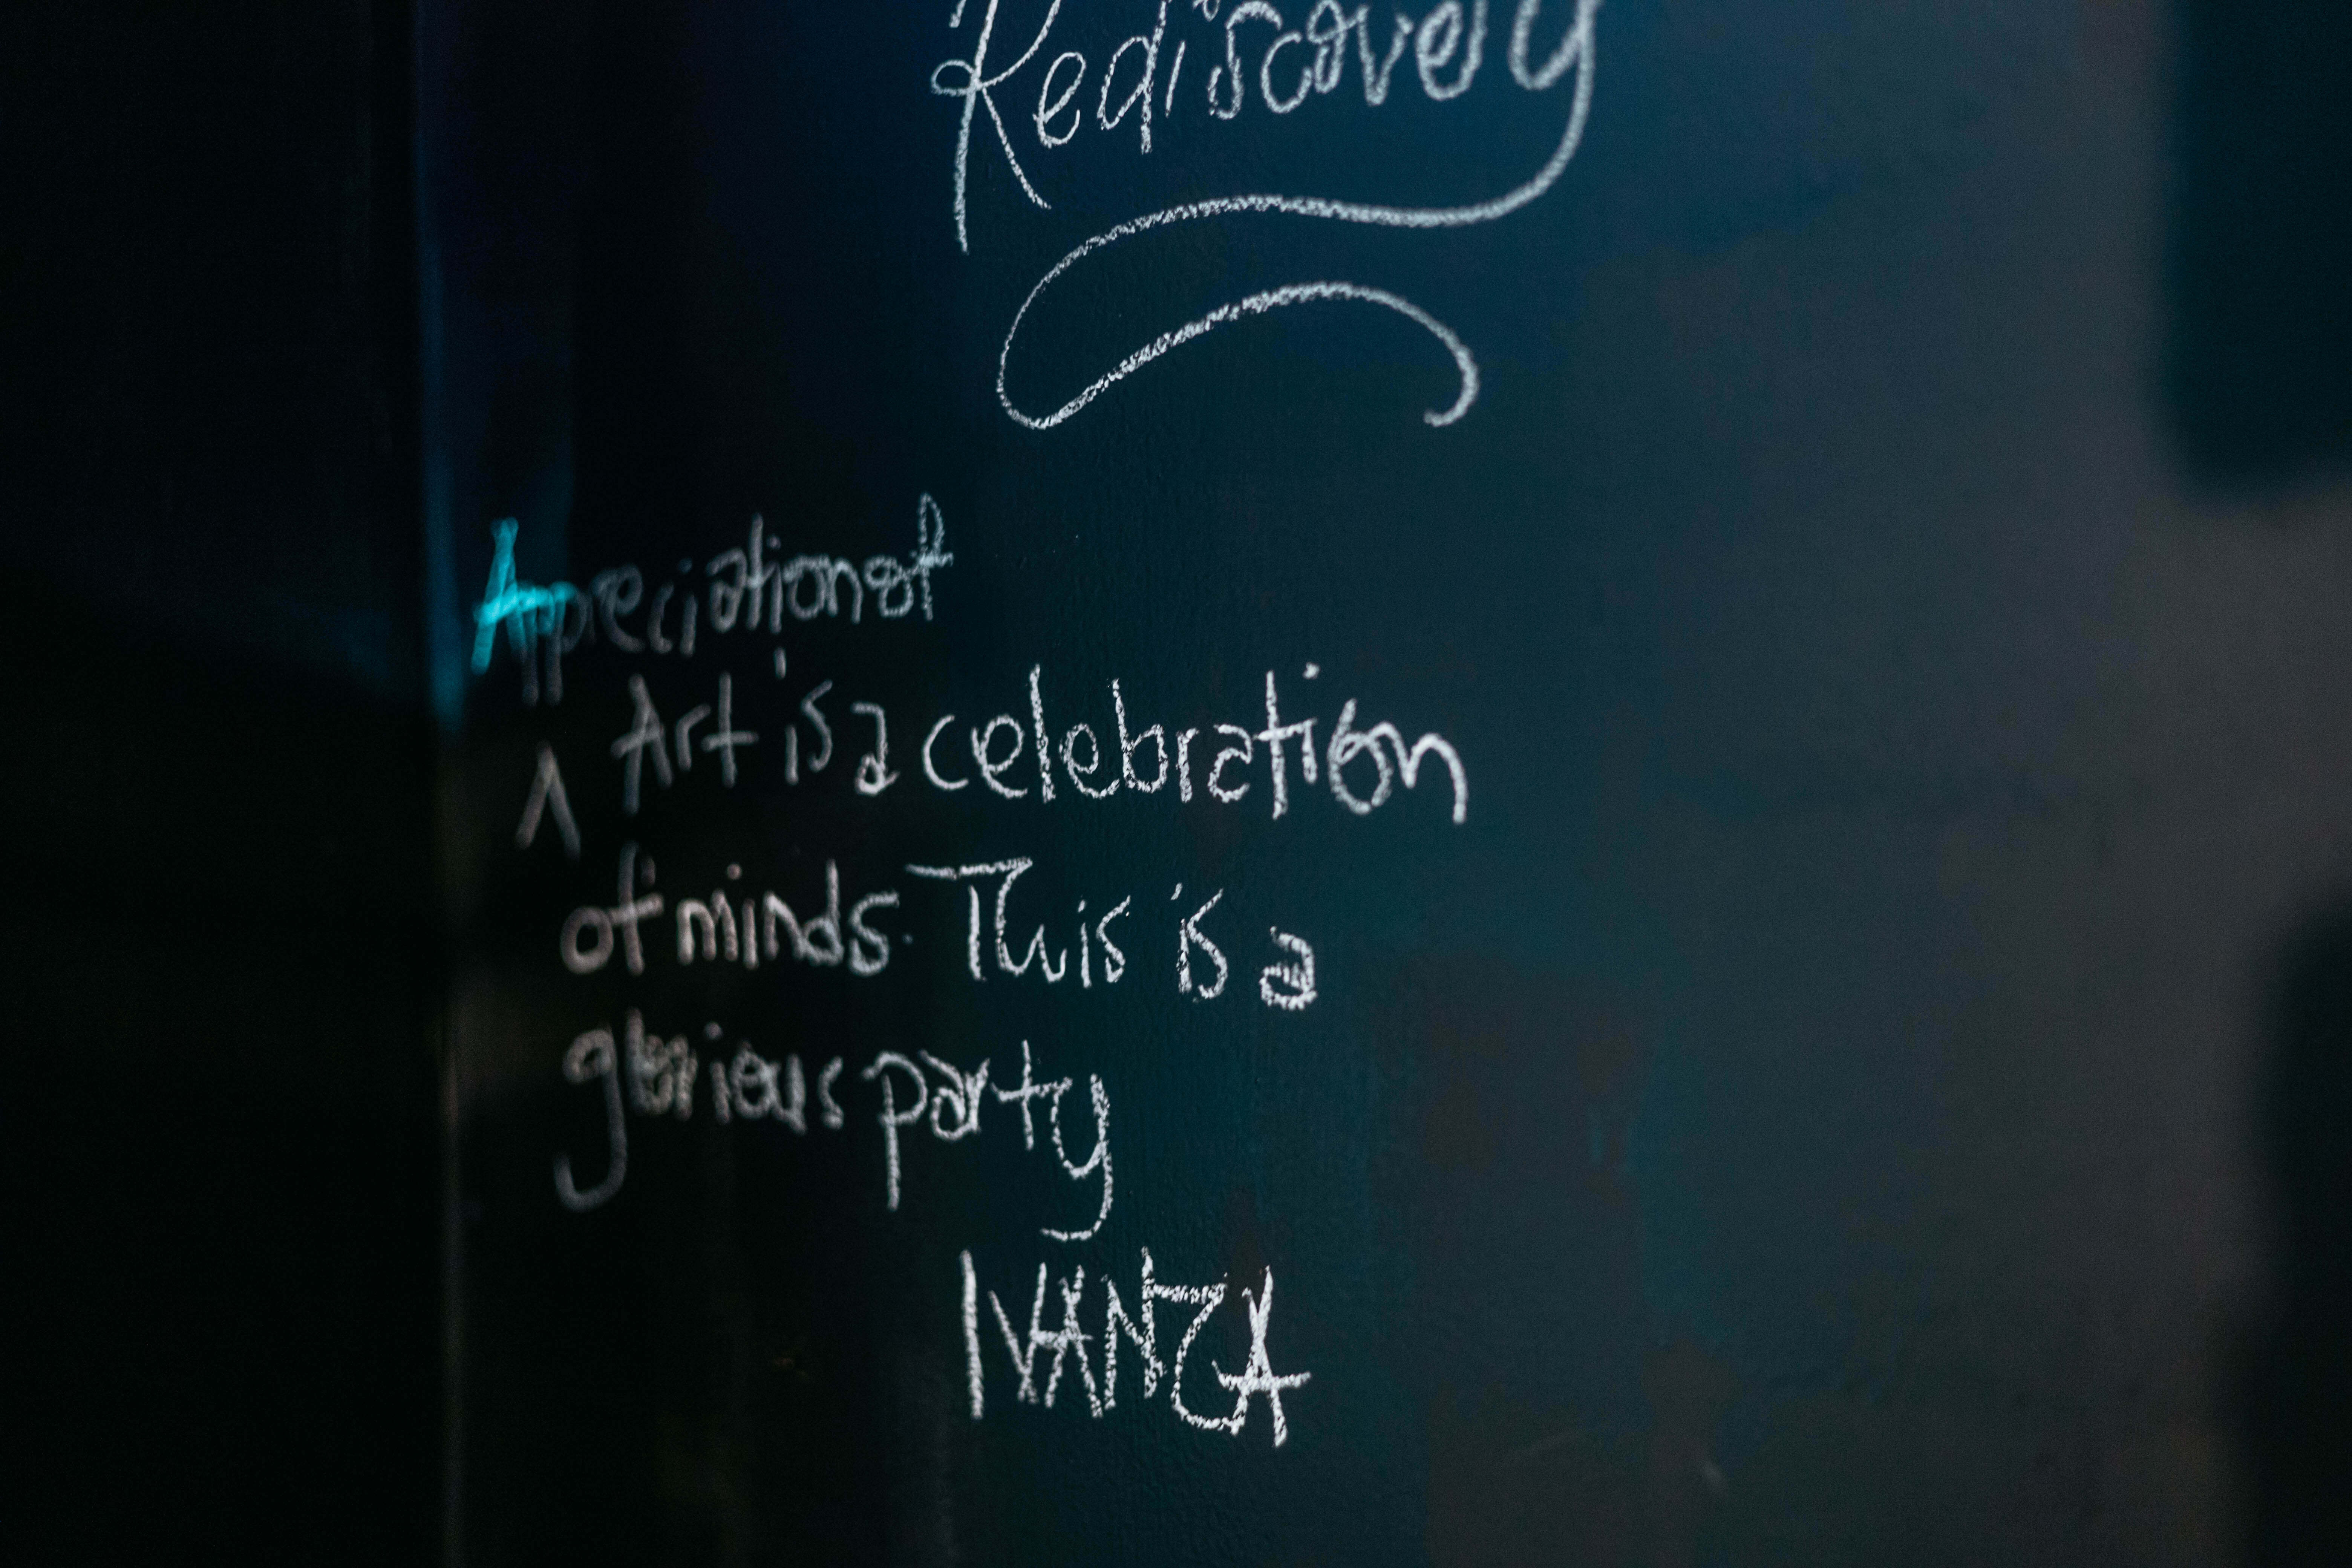 Rediscovery
Appreciation of
^ Art is a celebration
of minds. This is a
glorious party
IVANZA